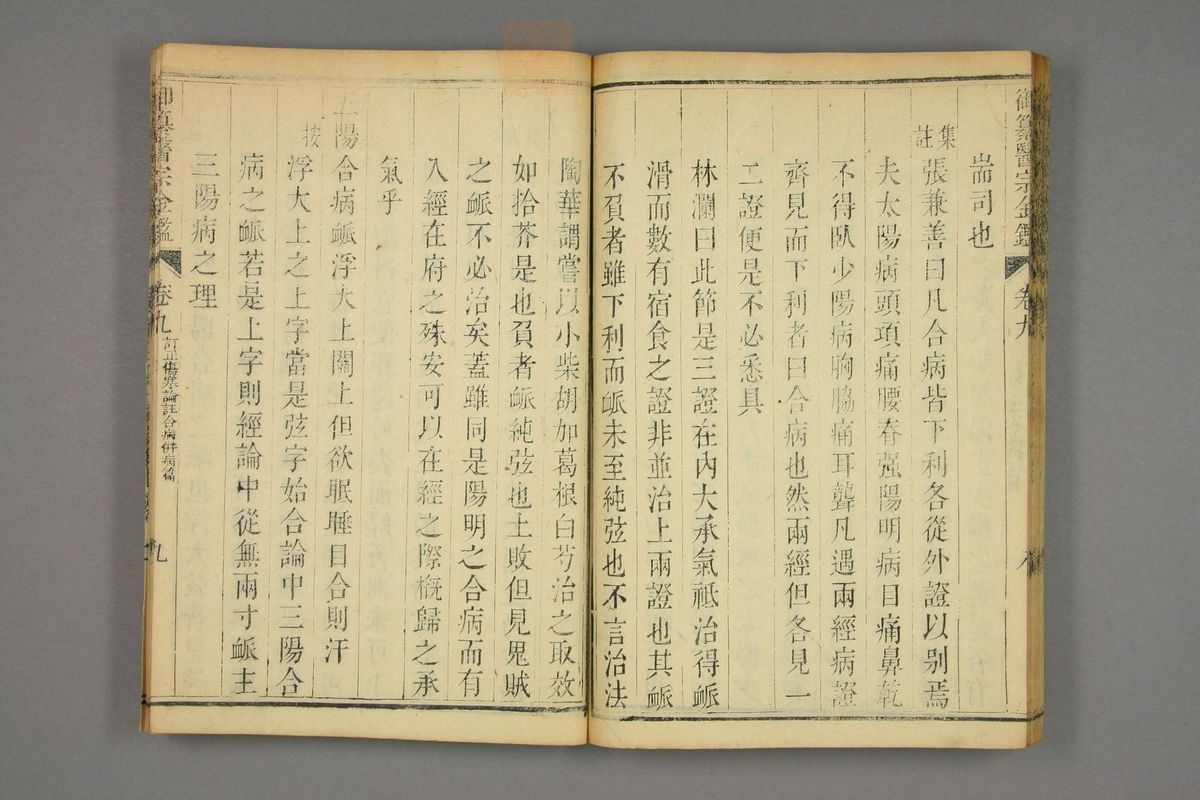 御纂醫宗金鑑 卷九 八
耑司也
集註 張兼善曰凡合病皆下利各從外證以别焉
夫太陽病頭項痛腰脊强陽明病目痛鼻乾
不得臥少陽病胸脇痛耳聾凡遇兩經病證
齊見而下利者曰合病也然兩經但各見一
二證便是不必悉具
林瀾曰此節是三證在內大承氣祗治得脈
滑而數有宿食之證非並治上兩證也其脈
不負者雖下利而脈未至純弦也不言治法
陶華謂嘗以小柴胡加葛根白芍治之取效
如拾芥是也負者脈純弦也土敗但見鬼賊
之脈不必治矣蓋雖同是陽明之合病而有
入經在府之殊安可以在經之際概歸之承
氣乎
三陽合病脈浮大上關上但欲眠睡目合則汗
按 浮大上之上字當是弦字始合論中三陽合
病之脈若是上字則經論中從無兩寸脈主
三陽病之理
御纂醫宗金鑑 卷九 訂正傷寒論註合病併病篇 九